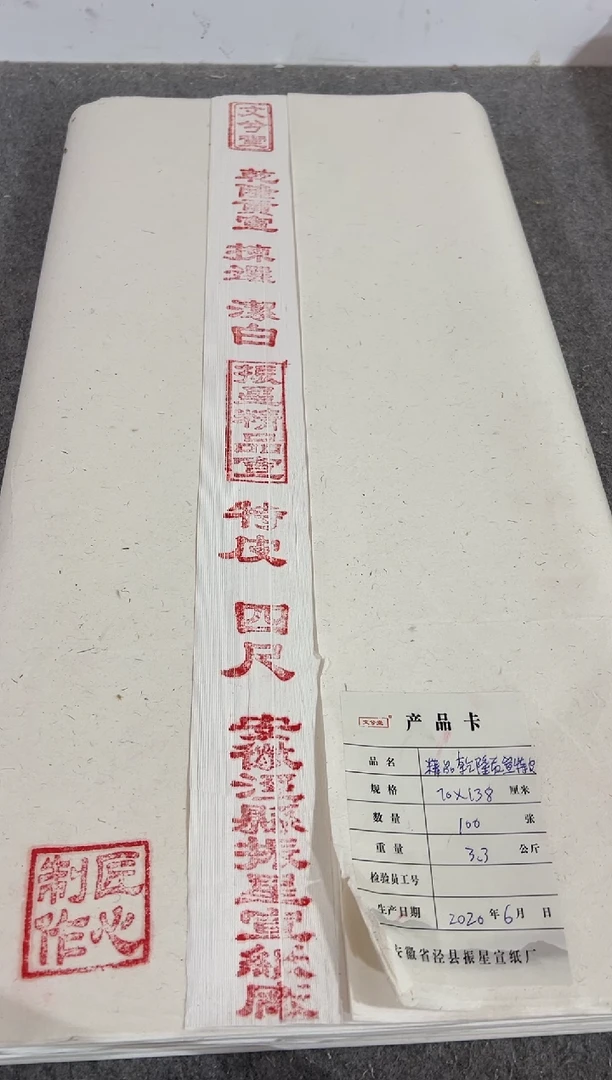 文兮堂
乾隆貢宣
拣選
潔白
振星精品宣
特皮
四尺
安徽泾縣振星宣紙廠
匠心
制作
文兮堂® 产品卡
品名 精品乾隆贡宣特皮
规格 70×138 厘米
数量 100 张
重量 3.3 公斤
检验员工号
生产日期 2020年6月 日
安徽省泾县振星宣纸厂